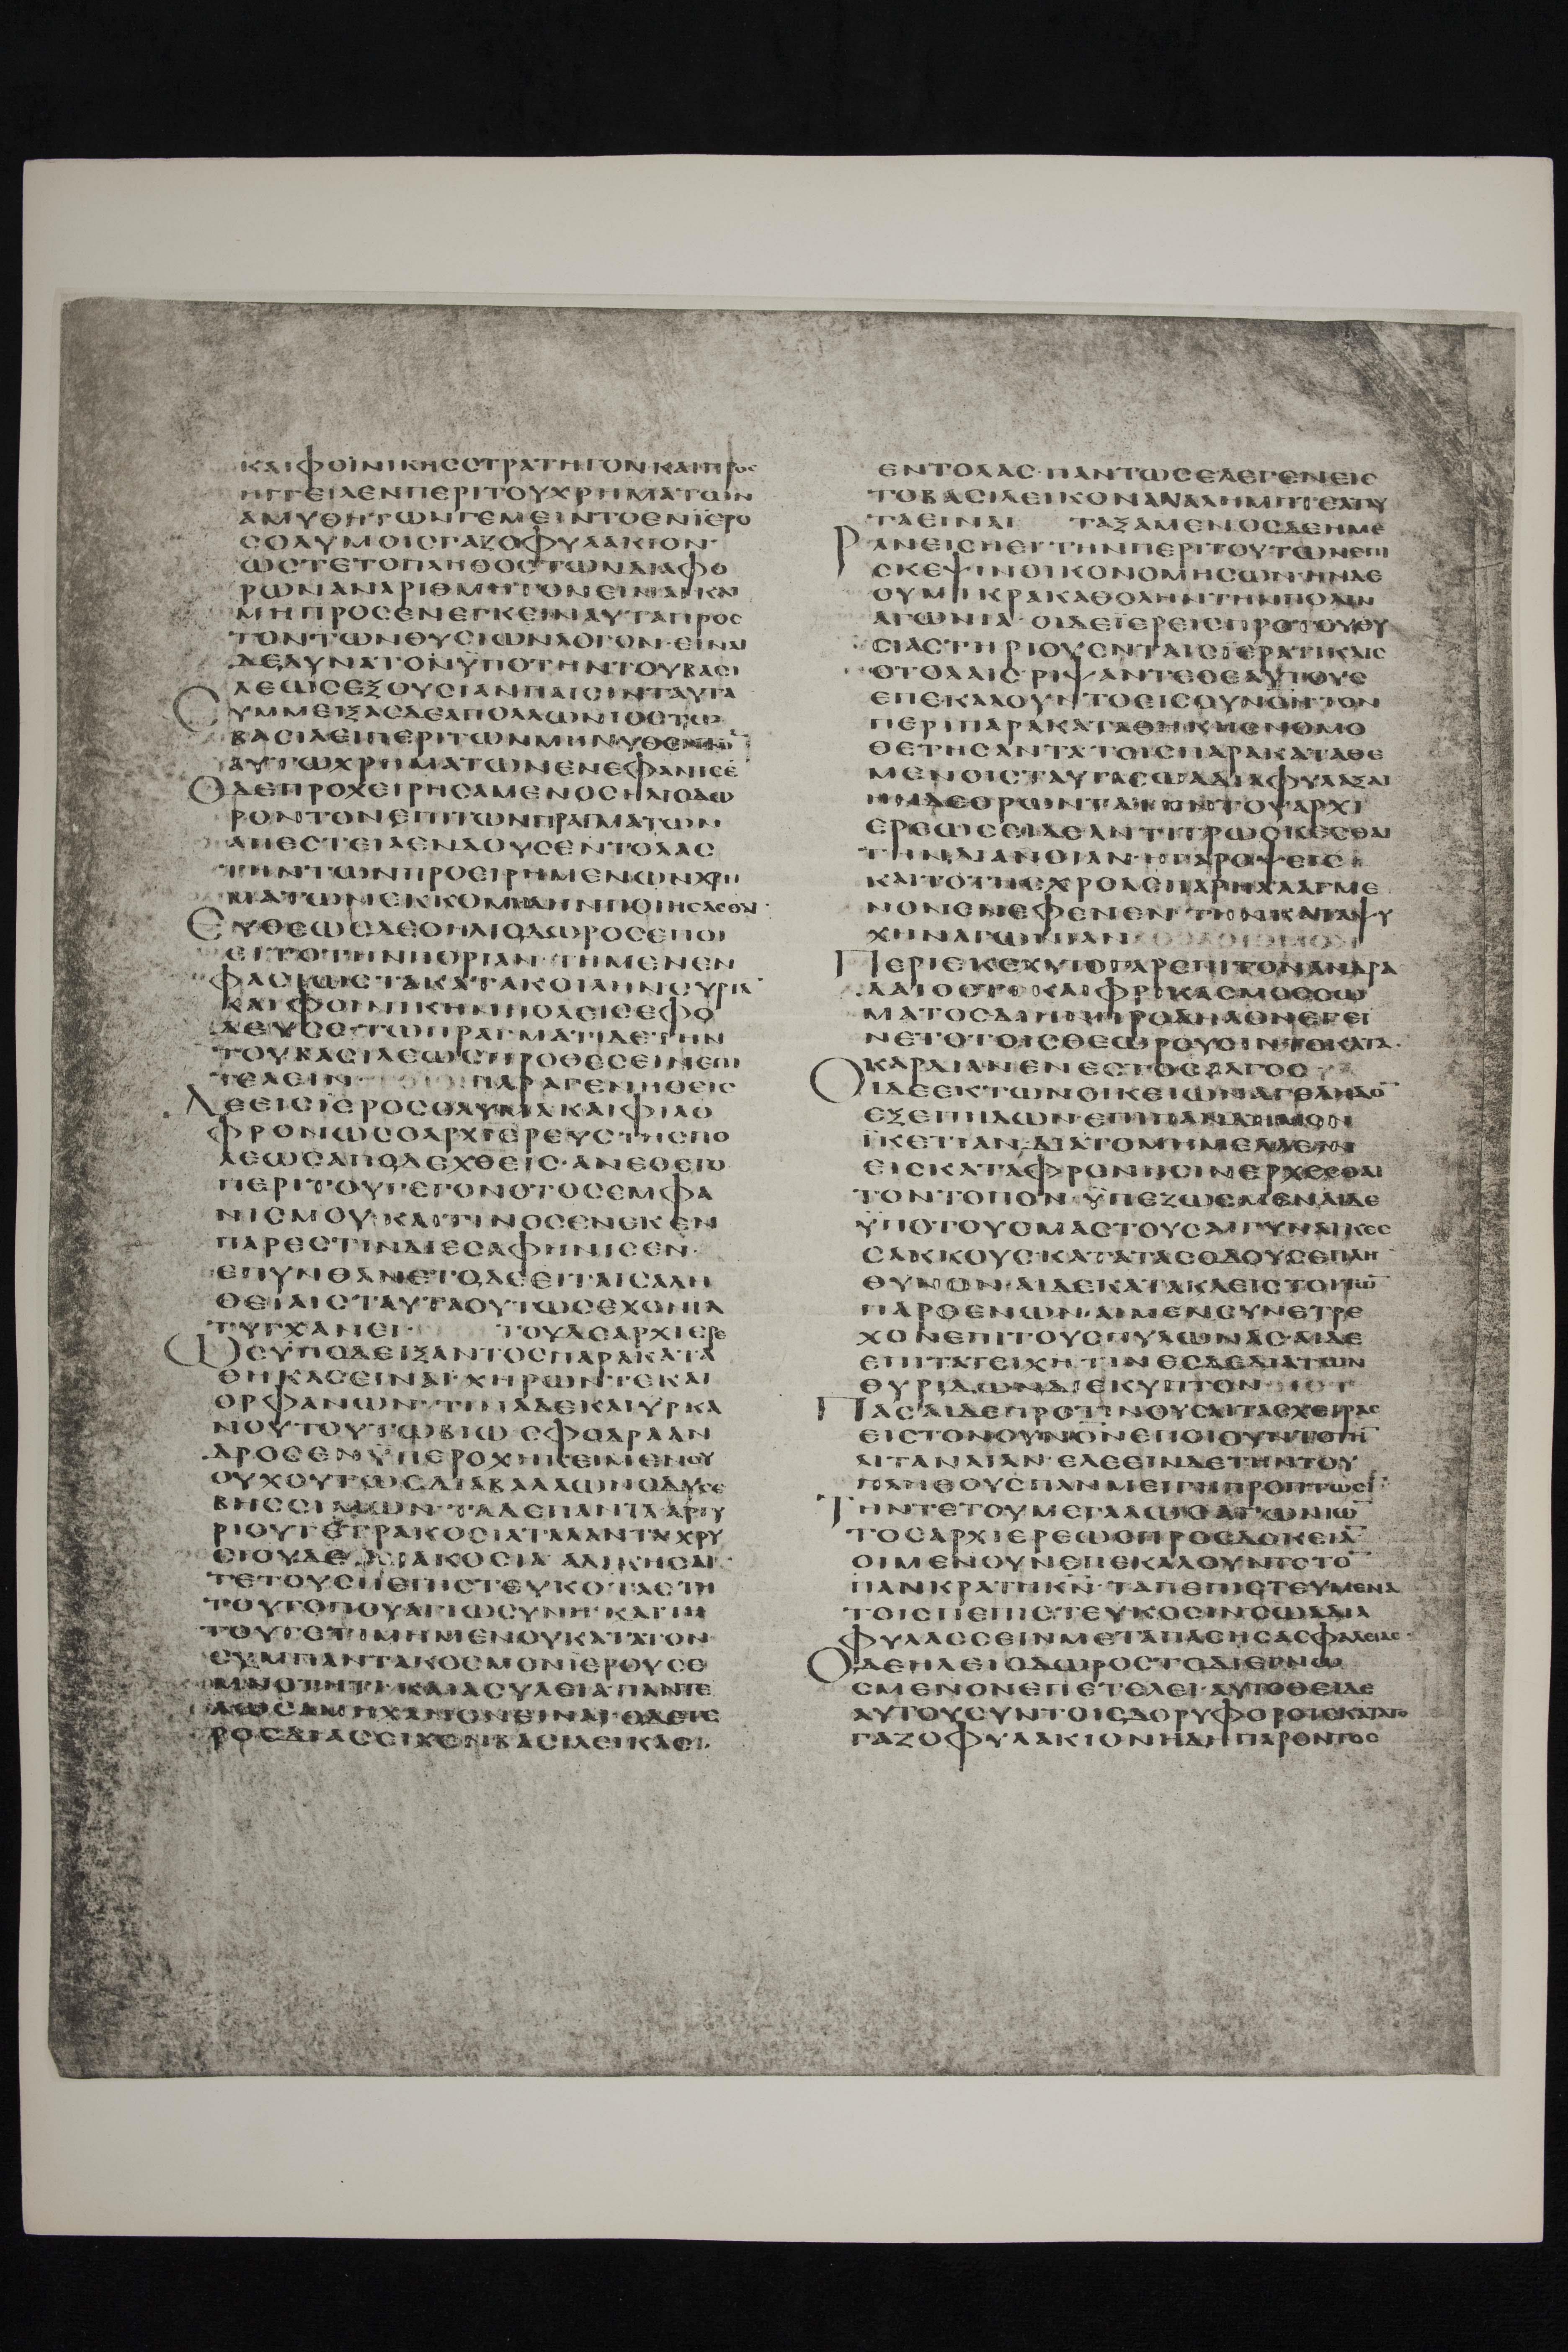 ΚΑΙΦΟΙΝΙΚΗϹϹΤΡΑΤΗΓΟΝ·ΚΑΙΠΡΟϹ
ΗΓΓΕΙΛΕΝΠΕΡΙΤΟΥΧΡΗΜΑΤΩΝ
ΑΜΥΘΗΤΩΝΓΕΜΕΙΝΤΟΕΝΪΕΡΟ
ϹΟΛΥΜΟΙϹΓΑΖΟΦΥΛΑΚΙΟΝ·
ΩϹΤΕΤΟΠΛΗΘΟϹΤΩΝΔΙΑΦΟ
ΡΩΝΑΝΑΡΙΘΜΗΤΟΝΕΙΝΑΙΚΑΙ
ΜΗΠΡΟϹΕΝΕΓΚΕΙΝΑΥΤΑΠΡΟϹ
ΤΟΝΤΩΝΘΥϹΙΩΝΛΟΓΟΝ·ΕΙΝΑΙ
ΔΕΔΥΝΑΤΟΝΫΠΟΤΗΝΤΟΥΒΑϹΙ
ΛΕΩϹΕΞΟΥϹΙΑΝΠΑΙϹΙΝΤΑΥΤΑ
ϹΥΜΜΕΙΞΑϹΔΕΑΠΟΛΛΩΝΙΟϹΤΩ
ΒΑϹΙΛΕΙΠΕΡΙΤΩΝΜΗΝΥΘΕΝΤΩ̅
ΑΥΤΩΧΡΗΜΑΤΩΝΕΝΕΦΑΝΙϹΕ̅
ΟΔΕΠΡΟΧΕΙΡΗϹΑΜΕΝΟϹΗΛΙΟΔΩ
ΡΟΝΤΟΝΕΠΙΤΩΝΠΡΑΓΜΑΤΩΝ
ΑΠΕϹΤΕΙΛΕΝΔΟΥϹΕΝΤΟΛΑϹ
ΤΗΝΤΩΝΠΡΟΕΙΡΗΜΕΝΩΝΧΡΗ
ΜΑΤΩΝΕΚΚΟΜΙΔΗΝΠΟΙΗϹΑϹΘΑΙ·
ΕΥΘΕΩϹΔΕΟΗΛΙΟΔΩΡΟϹΕΠΟΙ
ΕΙΤΟΤΗΝΠΟΡΙΑΝ·ΤΗΜΕΝΕΝ
ΦΑϹΙΩϹΤΑΚΑΤΑΚΟΙΛΗΝϹΥΡΙΑ̅
ΚΑΙΦΟΙΝΙΚΗΝΠΟΛΕΙϹΕΦΟ
ΔΕΥϹΕ·ΤΩΠΡΑΓΜΑΤΙΔΕΤΗΝ
ΤΟΥΒΑϹΙΛΕΩϹΠΡΟΘΕϹΕΙΝΕΠΙ
ΤΕΛΕΙΝ ΠΑΡΑΓΕΝΗΘΕΙϹ
ΔΕΕΙϹΪΕΡΟϹΟΛΥΜΑΚΑΙΦΙΛΟ
ΦΡΟΝΩϹΟΑΡΧΙΕΡΕΥϹΤΗϹΠΟ
ΛΕΩϹΑΠΟΔΕΧΘΕΙϹ·ΑΝΕΘΕΤΟ
ΠΕΡΙΤΟΥΓΕΓΟΝΟΤΟϹΕΜΦΑ
ΝΙϹΜΟΥ·ΚΑΙΤΙΝΟϹΕΝΕΚΕΝ
ΠΑΡΕϹΤΙΝΔΙΕϹΑΦΗΝΙϹΕΝ·
ΕΠΥΝΘΑΝΕΤΟΔΕΕΙΤΑΙϹΑΛΗ
ΘΕΙΑΙϹΤΑΥΤΑΟΥΤΩϹΕΧΟΝΤΑ
ΤΥΓΧΑΝΕΙ· ΤΟΥΔΕΑΡΧΙΕΡΕ
ΩϹΫΠΟΔΕΙΞΑΝΤΟϹΠΑΡΑΚΑΤΑ
ΘΗΚΑϹΕΙΝΑΙ·ΧΗΡΩΝΤΕΚΑΙ
ΟΡΦΑΝΩΝ·ΤΙΝΑΔΕΚΑΙΥΡΚΑ
ΝΟΥΤΟΥΤΩΒΙΩϹΦΟΔΡΑΑΝ
ΔΡΟϹΕΝΫΠΕΡΟΧΗΚΕΙΜΕΝΟΥ
ΟΥΧΟΥΤΩϹΔΙΑΒΑΛΛΩΝΟΔΥϹϹΕ
ΒΗϹϹΙΜΩΝ·ΤΑΔΕΠΑΝΤΑΑΡΓΥ
ΡΙΟΥΤΕΤΡΑΚΟϹΙΑΤΑΛΑΝΤΑΧΡΥ
ϹΙΟΥΔΕΔΙΑΚΟϹΙΑ·ΑΔΙΚΗϹΑΙ·
ΤΕΤΟΥϹΠΕΠΙϹΤΕΥΚΟΤΑϹΤΗ
ΤΟΥΤΟΠΟΥΑΓΙΩϹΥΝΗ·ΚΑΙΤΗ
ΤΟΥΤΕΤΙΜΗΜΕΝΟΥΚΑΤΑΤΟΝ
ϹΥΜΠΑΝΤΑΚΟϹΜΟΝΙΕΡΟΥϹΕ
ΜΝΟΤΗΤΙ·ΚΑΙΑϹΥΛΕΙΑΠΑΝΤΕ
ΛΩϹΑΜΗΧΑΝΟΝΕΙΝΑΙ·ΟΔΕΤΕ
ΡΟϹΔΙΑϹϹΕΙΧΕΝΒΑϹΙΛΕΙΚΑϹ
ΕΝΤΟΛΑϹ·ΠΑΝΤΩϹΕΛΕΓΕΝΕΙϹ
ΤΟΒΑϹΙΛΕΙΚΟΝΑΝΑΛΗΜΠΤΕΑΤΑΥ
ΤΑΕΙΝΑΙ ΤΑΞΑΜΕΝΟϹΔΕΗΜΕ
ΡΑΝΕΙϹΗΕΙΤΗΝΠΕΡΙΤΟΥΤΩΝΕΠΙ
ϹΚΕΨΙΝΟΙΚΟΝΟΜΗϹΩΝ·ΗΝΔΕ
ΟΥΜΙΚΡΑΚΑΘΟΛΗΝΤΗΝΠΟΛΙΝ
ΑΓΩΝΙΑ·ΟΙΔΕΪΕΡΕΙϹΠΡΟΤΟΥΘΥ
ϹΙΑϹΤΗΡΙΟΥΕΝΤΑΙϹΪΕΡΑΤΙΚΑΙϹ
ϹΤΟΛΑΙϹΡΙΨΑΝΤΕϹΕΑΥΤΟΥϹ
ΕΠΕΚΑΛΟΥΝΤΟΕΙϹΟΥΝΟΝΤΟΝ
ΠΕΡΙΠΑΡΑΚΑΤΑΘΗΚΗϹΝΟΜΟ
ΘΕΤΗϹΑΝΤΑΤΟΙϹΠΑΡΑΚΑΤΑΘΕ
ΜΕΝΟΙϹΤΑΥΤΑϹΩΑΔΙΑΦΥΛΑΞΑΙ
ΗΝΔΕΟΡΩΝΤΑΤΗΝΤΟΥΑΡΧΙ
ΕΡΕΩϹΕΙΔΕΑΝΤΙΤΡΩϹΚΕϹΘΑΙ
ΤΗΝΔΙΑΝΟΙΑΝ·ΗΓΑΡΟΨΕΙϹ
ΚΑΙΤΟΤΗϹΧΡΟΑϹΠΑΡΗΛΛΑΓΜΕ
ΝΟΝΕΝΕΦΕΝΕΝΤΗΝΚΑΤΑΨΥ
ΧΗΝΑΓΩΝΙΑΝ
ΠΕΡΙΕΚΕΧΥΤΟΓΑΡΕΠΙΤΟΝΑΝΔΡΑ
ΔΑΙΟϹΤΕΚΑΙΦΡΙΚΑϹΜΟϹϹΩ
ΜΑΤΟϹΔΙΩΝΠΡΟΔΗΛΟΝΕΓΕΙ
ΝΕΤΟΤΟΙϹΘΕΩΡΟΥϹΙΝΤΟΚΑΤΑ
ΚΑΡΔΙΑΝΕΝΕϹΤΟϹΑΛΓΟϹ
ΟΙΔΕΕΚΤΩΝΟΙΚΕΙΩΝΑΓΕΛΗΔΟ̅
ΕΞΕΠΗΔΩΝ·ΕΠΙΠΑΝΔΗΜΟΝ
ΪΚΕΤΙΑΝ·ΔΙΑΤΟΜΗΜΕΛΛΕΙΝ
ΕΙϹΚΑΤΑΦΡΟΝΗϹΙΝΕΡΧΕϹΘΑΙ
ΤΟΝΤΟΠΟΝ·ΫΠΕΖΩϹΜΕΝΑΙΔΕ
ΫΠΟΤΟΥϹΜΑϹΤΟΥϹΑΙΓΥΝΑΙΚΕϹ
ϹΑΚΚΟΥϹ·ΚΑΤΑΤΑϹΟΔΟΥϹΕΠΛΗ
ΘΥΝΟΝ·ΑΙΔΕΚΑΤΑΚΛΕΙϹΤΟΙΤΩ̅
ΠΑΡΘΕΝΩΝ·ΑΙΜΕΝϹΥΝΕΤΡΕ
ΧΟΝΕΠΙΤΟΥϹΠΥΛΩΝΑϹ·ΑΙΔΕ
ΕΠΙΤΑΤΕΙΧΗ·ΤΙΝΕϹΔΕΔΙΑΤΩΝ
ΘΥΡΙΔΩΝΔΙΕΚΥΠΤΟΝ
ΠΑϹΑΙΔΕΠΡΟΤΙΝΟΥϹΑΙΤΑϹΧΕΙΡΑϹ
ΕΙϹΤΟΝΟΥΝΟΝΕΠΟΙΟΥΝΤΟΤΗ̅
ΛΙΤΑΝΙΑΝ·ΕΛΕΕΙΝΔΕΤΗΝΤΟΥ
ΠΛΗΘΟΥϹΠΑΝΜΕΙΓΗΠΡΟΠΤΩϹΙ̅·
ΤΗΝΤΕΤΟΥΜΕΓΑΛΩϹΑΓΩΝΙΩ̅
ΤΟϹΑΡΧΙΕΡΕΩϹΠΡΟϹΔΟΚΕΙΑ̅
ΟΙΜΕΝΟΥΝΕΠΕΚΑΛΟΥΝΤΟΤΟ̅
ΠΑΝΚΡΑΤΗΚ̅Ν̅·ΤΑΠΕΠΙϹΤΕΥΜΕΝΑ
ΤΟΙϹΠΕΠΙϹΤΕΥΚΟϹΙΝϹΩΑΔΙΑ
ΦΥΛΑϹϹΕΙΝΜΕΤΑΠΑϹΗϹΑϹΦΑΛΕΙΑϹ·
ΟΔΕΗΛΕΙΟΔΩΡΟϹΤΟΔΙΕΓΝΩ
ϹΜΕΝΟΝΕΠΕΤΕΛΕΙ·ΑΥΤΟΘΕΙΔΕ
ΑΥΤΟΥϹΥΝΤΟΙϹΔΟΡΥΦΟΡΟΙϹΚΑΤΑΤΟ
ΓΑΖΟΦΥΛΑΚΙΟΝΗΔΗΠΑΡΟΝΤΟϹ